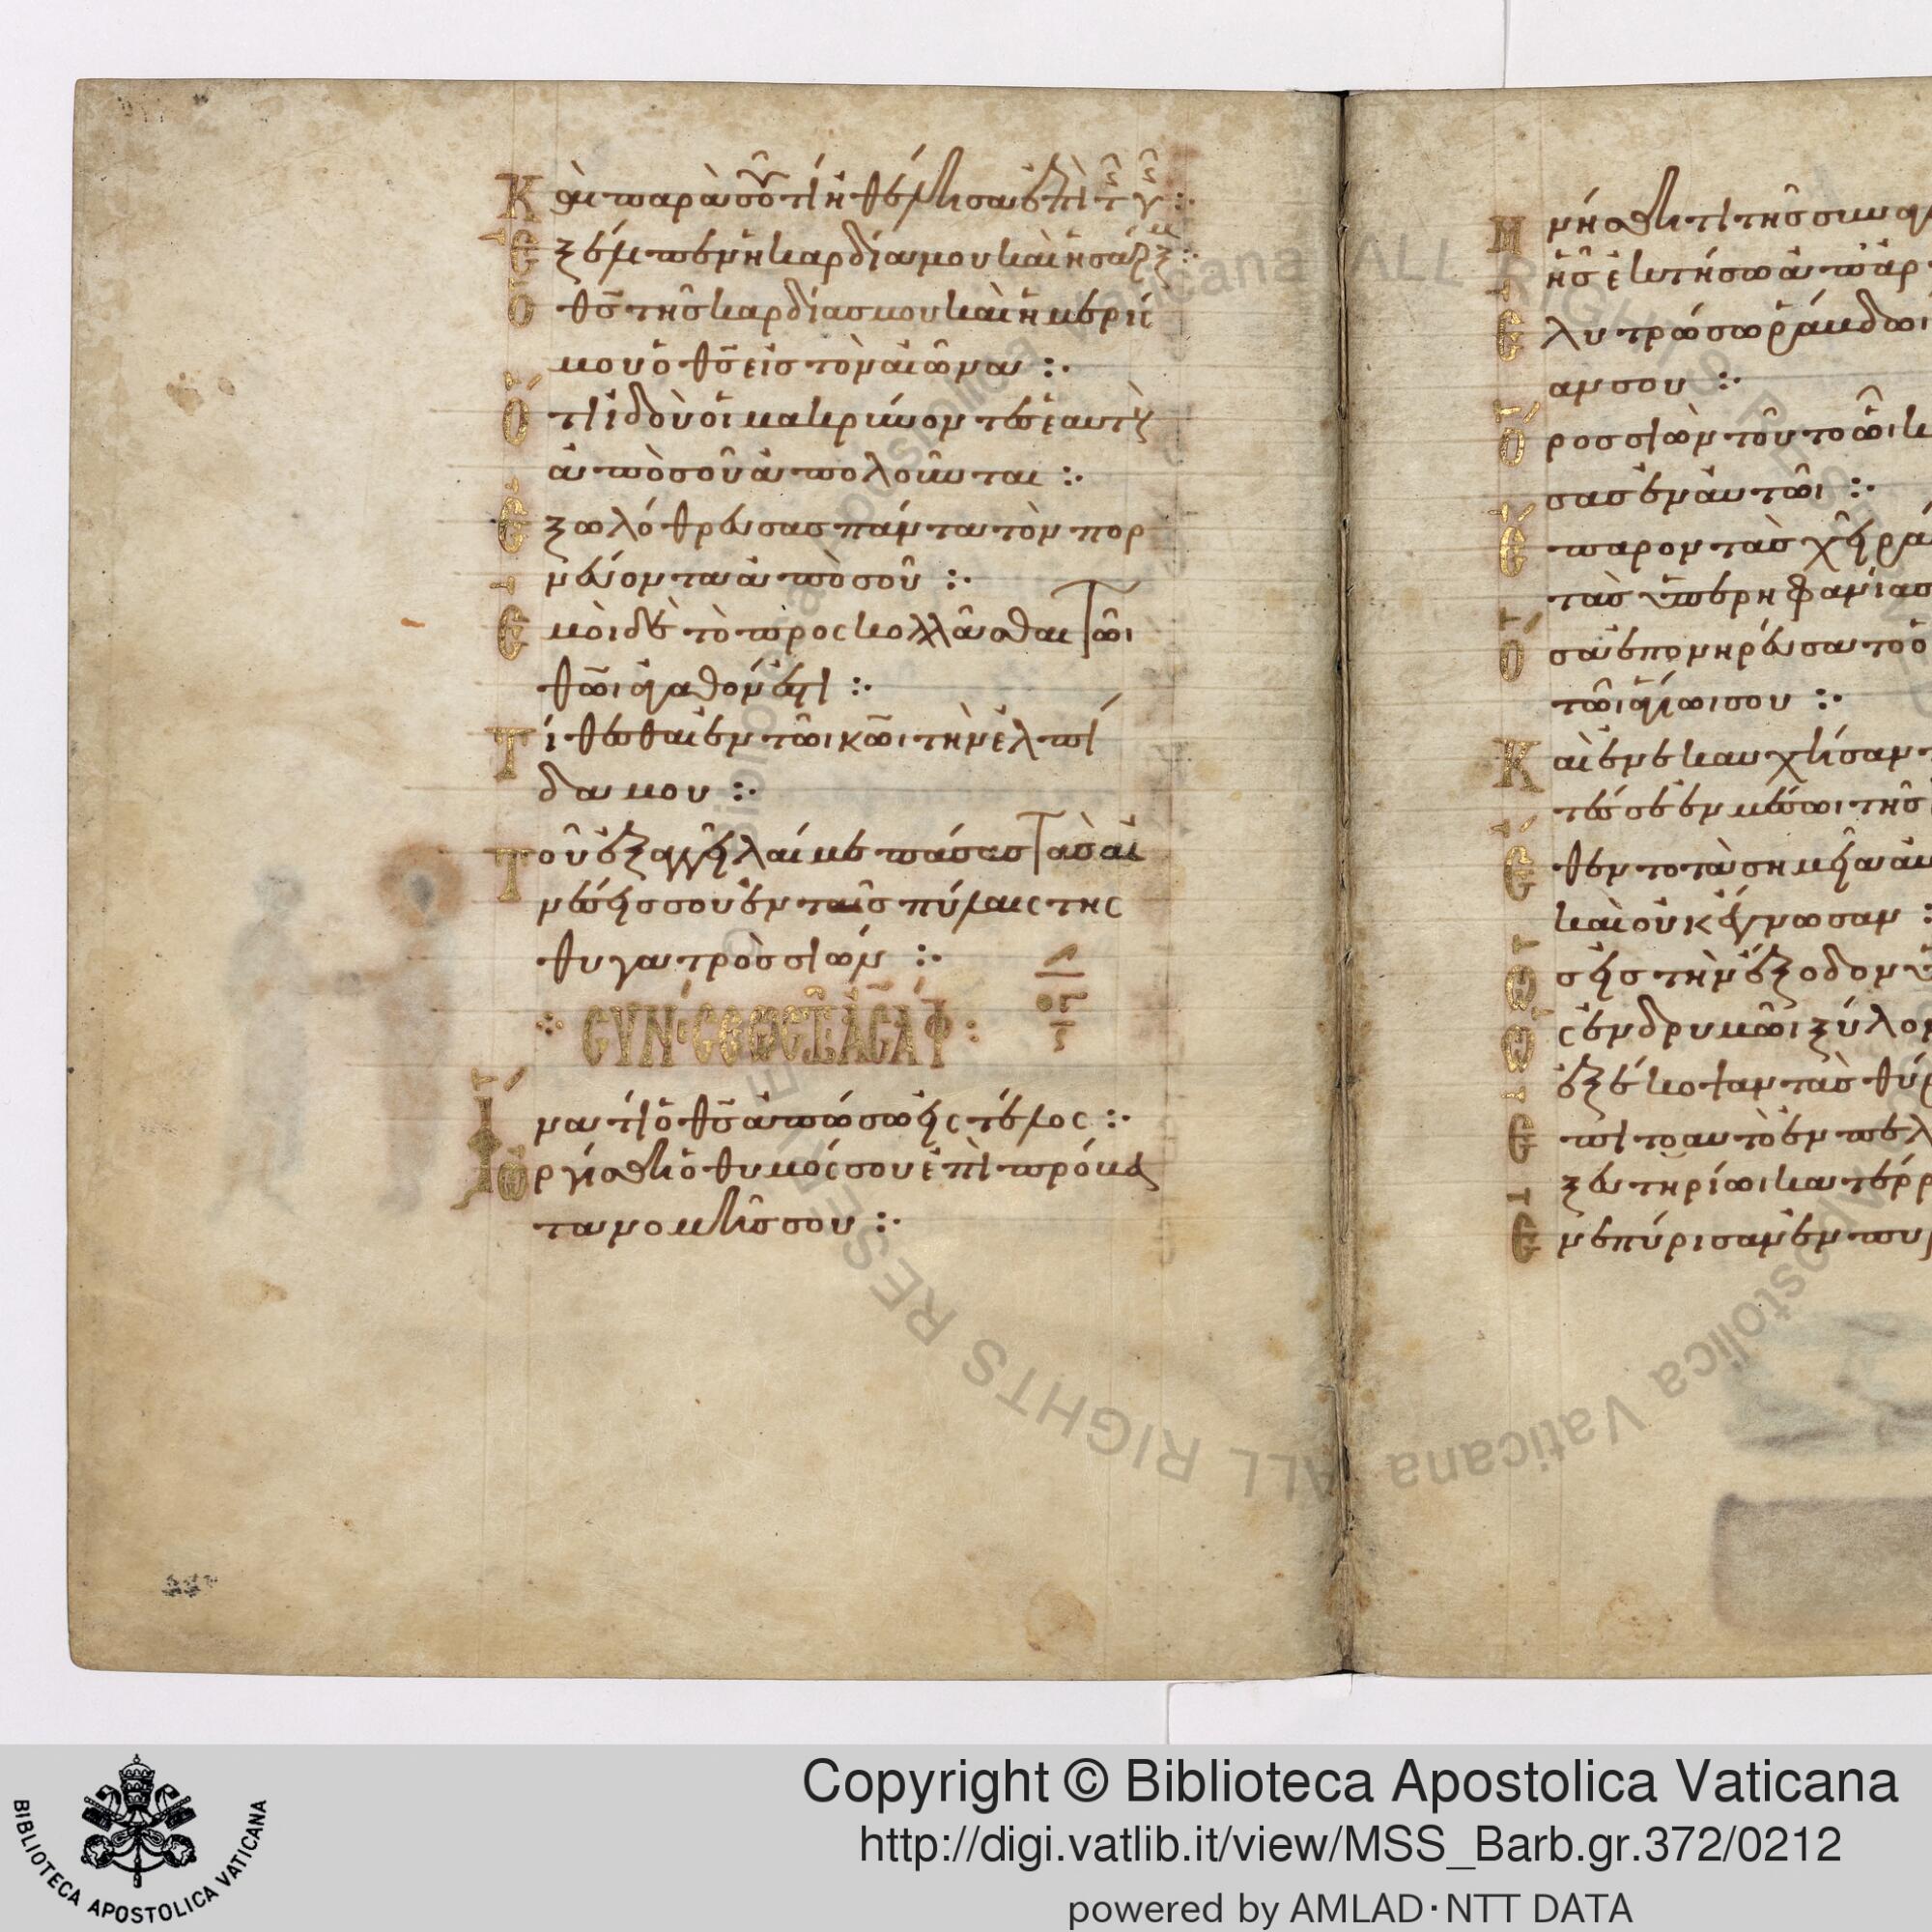 Καὶ παρὰ σοῦ τί ἠθέλησα ἐπὶ τ γ :·
Ἐξέλιπεν ἡ καρδία μου καὶ ἡ σάρξ μ :·
Ὁ θς τῆς καρδίας μου καὶ ἡ μερίς
μου ὁ θς εἰς τὸν αἰῶνα :·
Ὅτι ἰδοὺ οἱ μακρύνοντες ἑαυτοὺς
ἀπὸ σοῦ ἀπολοῦνται :·
Ἐξωλόθρευσας πάντα τὸν πορ
νεύοντα ἀπὸ σοῦ :·
Ἐμοὶ δὲ τὸ προσκολλᾶσθαι τῶι
θῶι ἀγαθόν ἐστι :·
Τίθεσθαι ἐν τῶι κῶι τὴν ἐλπί
δα μου :·
Τοῦ ἐξαγγεῖλαί με πάσας τὰς αἰ
νέσεις σου ἐν ταῖς πύλαις τῆς
θυγατρὸς σιών :·
ΣΥΝΕΣΕΩΣ ΤΩ ΑΣΑΦ :
Ἱνατί ὁ θς ἀπώσω εἰς τέλος :·
Ὠργίσθη ὁ θυμός σου ἐπὶ πρόβα
τα νομῆς σου :·
Μνήσθητι τῆς συναγ
ἧς ἐκτήσω ἀπ ἀρ
Ἐλυτρώσω ῥάβδον
ας σου :·
Ὄρος σιὼν τοῦτο ὧι κ
σας ἐν αὐτῶι :·
Ἔπαρον τὰς χεῖρά
τὰς ὑπερηφανίας
Ὅσα ἐπονηρεύσατο ὁ
τῶι ἁγίωι σου :·
Καὶ ἐνεκαυχήσαν
τές σε ἐν μέσωι τῆς
Ἔθεντο τὰ σημεῖα
καὶ οὐκ ἔγνωσαν :
σεις τὴν ἔξοδον
ς ἐν δρυμῶι ξύλο
ἐξέκοψαν τὰς θύρ
πιτοαυτὸ ἐν πελ
ξευτηρίωι κατέρρ
Ἐνεπύρισαν ἐν πυρ
BIBLIOTECA APOSTOLICA VATICANA
Copyright © Biblioteca Apostolica Vaticana
http://digi.vatlib.it/view/MSS_Barb.gr.372/0212
powered by AMLAD·NTT DATA